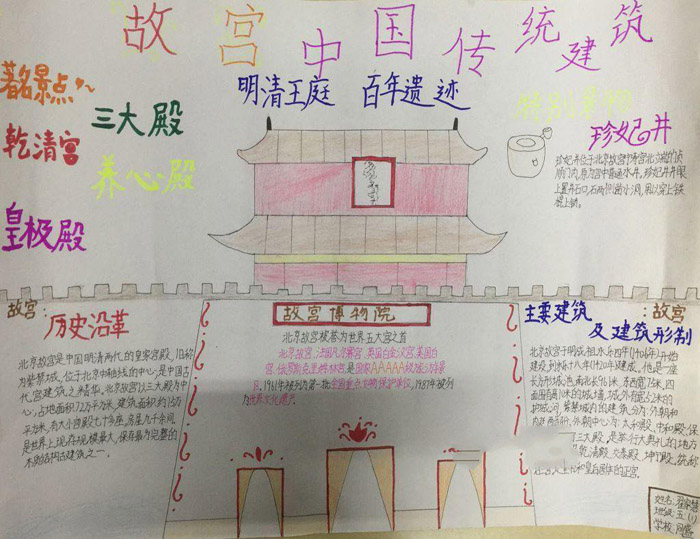 故宫中国传统建筑
明清王庭 百年遗迹
著名景点
三大殿
乾清宫
养心殿
皇极殿
特别景物
珍妃井
珍妃井位于北京故宫博宫北端的贞
顺门内,原为宫中普通水井,珍妃井井眼
上置井石口,石两侧凿小洞,
棍上锁。
故宫:
历史沿革
北京故宫是中国明清两代的皇家宫殿,旧称
为紫禁城,位于北京中轴线的中心,是中国古
代宫建筑之精华,北京故宫以三大殿为中
心,占地面积72万平方米,建筑面积约15万
平方米,有大小宫殿七十多座,房屋九千余间,
是世界上现存规模最大,保存最为完整的
木质结构古建筑之一。
故宫博物院
北京故宫被誉为世界五大宫之首
北京故宫,法国凡尔赛宫,英国白金汉宫,美国白
宫,俄罗斯克里姆林宫,是国家AAAAA级旅游景
区,1961年被列为第一批全国重点文物保护单位,1987年被列
为世界文化遗产。
主要建筑
及建筑形制
故宫
北京故宫于明成祖永乐四年(1406年)开始
建设,到永乐十八年(1420年)建成。他是一座
长方形城池,南北长961米,东西宽753米,四
面围有高10米的城墙,城外有宽52米的
护城河,紫禁城内的建筑分为外朝和
内廷两部分。外朝中心为:太和殿,中和殿,保
三大殿,是举行大典礼的地方
乾清宫,交泰殿,坤宁殿,统称
和皇后居住的正宫。
姓名:
班级:五(1)
学校: